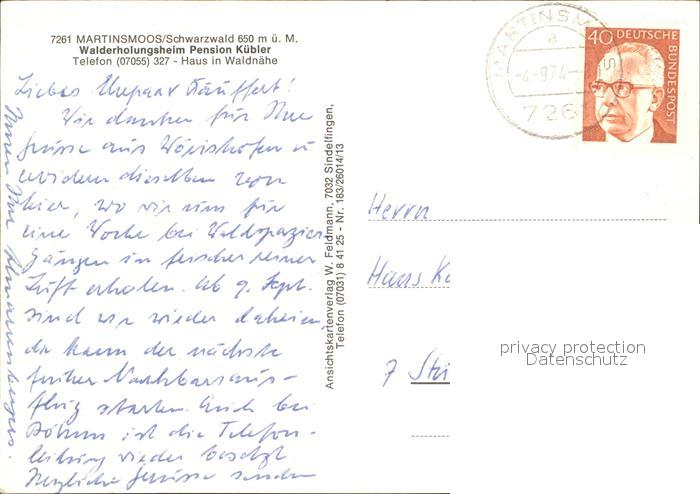 7261 MARTINSMOOS/Schwarzwald 650 m ü. M.
Walderholungsheim Pension Kübler
Telefon (07055) 327 - Haus in Waldnähe
Liebes Ehepaar
Wir danken für Ihre
Grüsse aus Wörishofen u
erwidern dieselben von
hier, wo wir uns für
eine Woche bei Waldspazier
gängen in frischer reiner
Luft erholen. Ab 9. Sept.
sind wir wieder daheim,
da kann der nächste
frohe Nachbarsaus-
flug starten. Auch bei
ist die Telefon-
leitung wieder besetzt.
Herzliche Grüsse senden
Ihnen Ihre
Ansichtskartenverlag W. Feldmann, 7032 Sindelfingen,
Telefon (07031) 8 41 25 - Nr. 183/26014/13
MARTINSMOOS
a
-4.-9.74
726
40 DEUTSCHE
BUNDESPOST
Herrn
Hans
7
privacy protection
Datenschutz